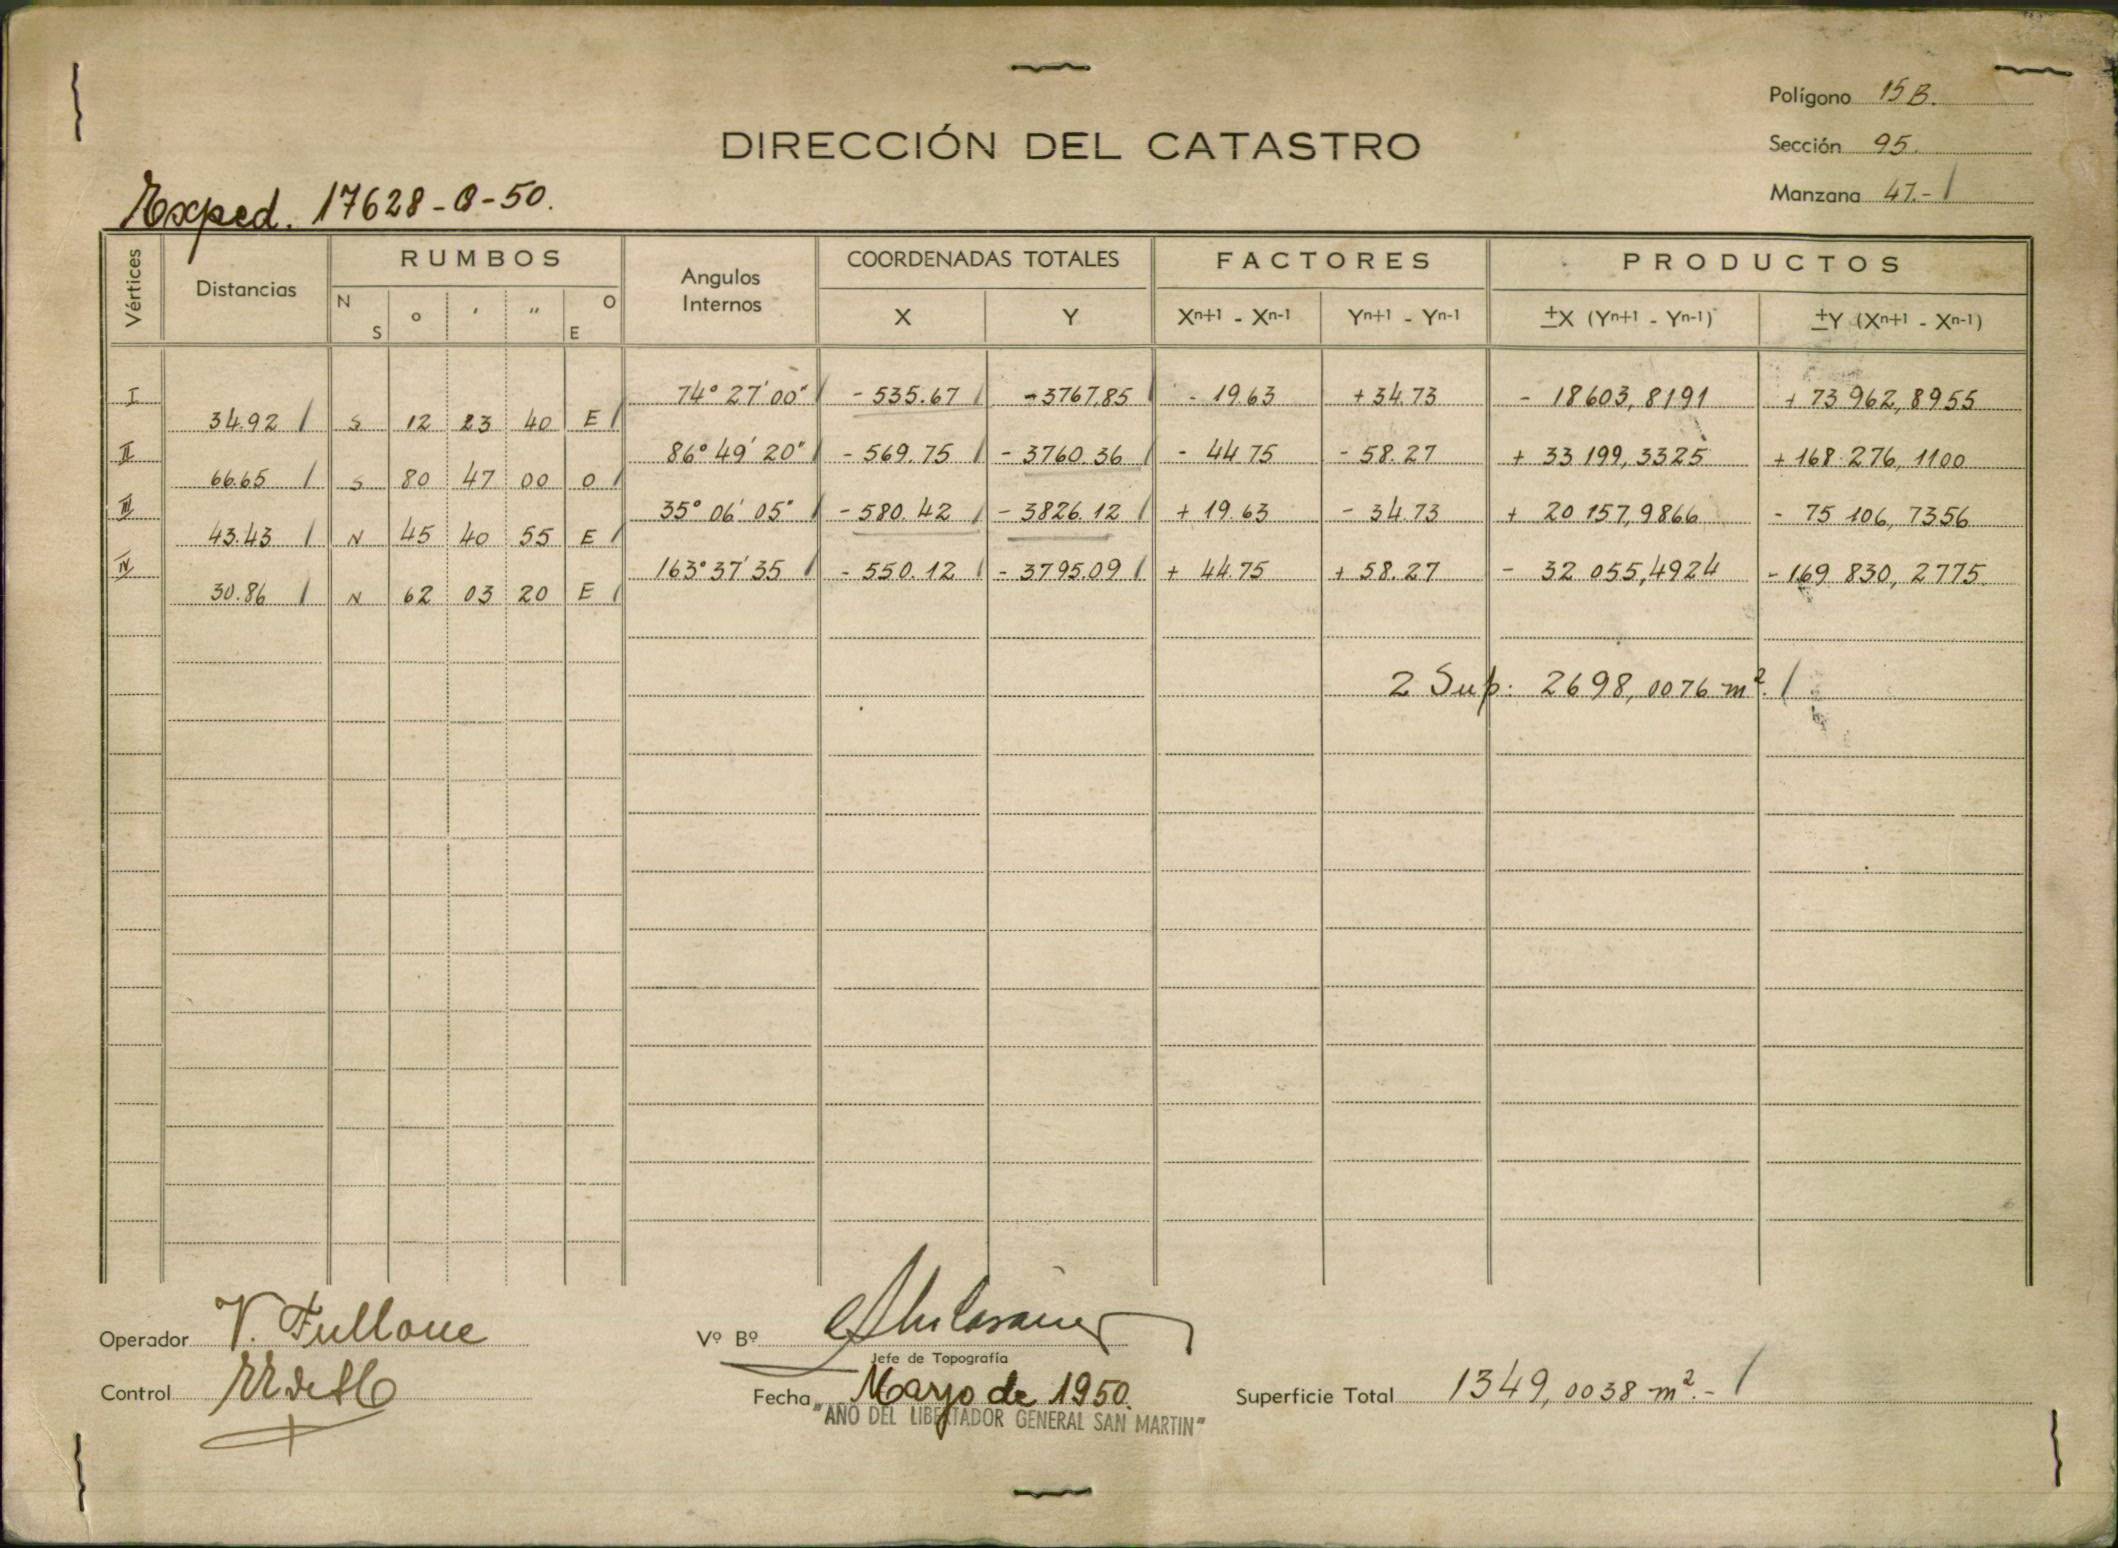 Polígono 15 B.
DIRECCIÓN DEL CATASTRO
Sección 95.
Manzana 47.-
Exped. 17628-O-50.
Vértices Distancias RUMBOS Angulos Internos COORDENADAS TOTALES FACTORES PRODUCTOS
N S ° ' " O E X Y Xn+1 - Xn-1 Yn+1 - Yn-1 ±X (Yn+1 - Yn-1) ±Y (Xn+1 - Xn-1)
I 74° 27' 00" - 535.67 - 3767.85 - 19.63 + 34.73 - 18603,8191 + 73 962,8955
34.92 S 12 23 40 E
II 86° 49' 20" - 569.75 - 3760.36 - 44 75 - 58.27 + 33 199,3325 + 168 276, 1100
66.65 S 80 47 00 O
III 35° 06' 05" - 580.42 - 3826.12 + 19.63 - 34.73 + 20 157,9866 - 75 106, 7356
43.43 N 45 40 55 E
IV 163° 37' 35 - 550.12 - 3795.09 + 44.75 + 58.27 - 32 055,4924 - 169 830, 2775
30.86 N 62 03 20 E
2 Sup. 2698,0076 m².
Operador V. Fullone
Vº Bº
Jefe de Topografía
Control
Fecha Mayo de 1950.
Superficie Total 1349,0038 m².-
"AÑO DEL LIBERTADOR GENERAL SAN MARTIN"